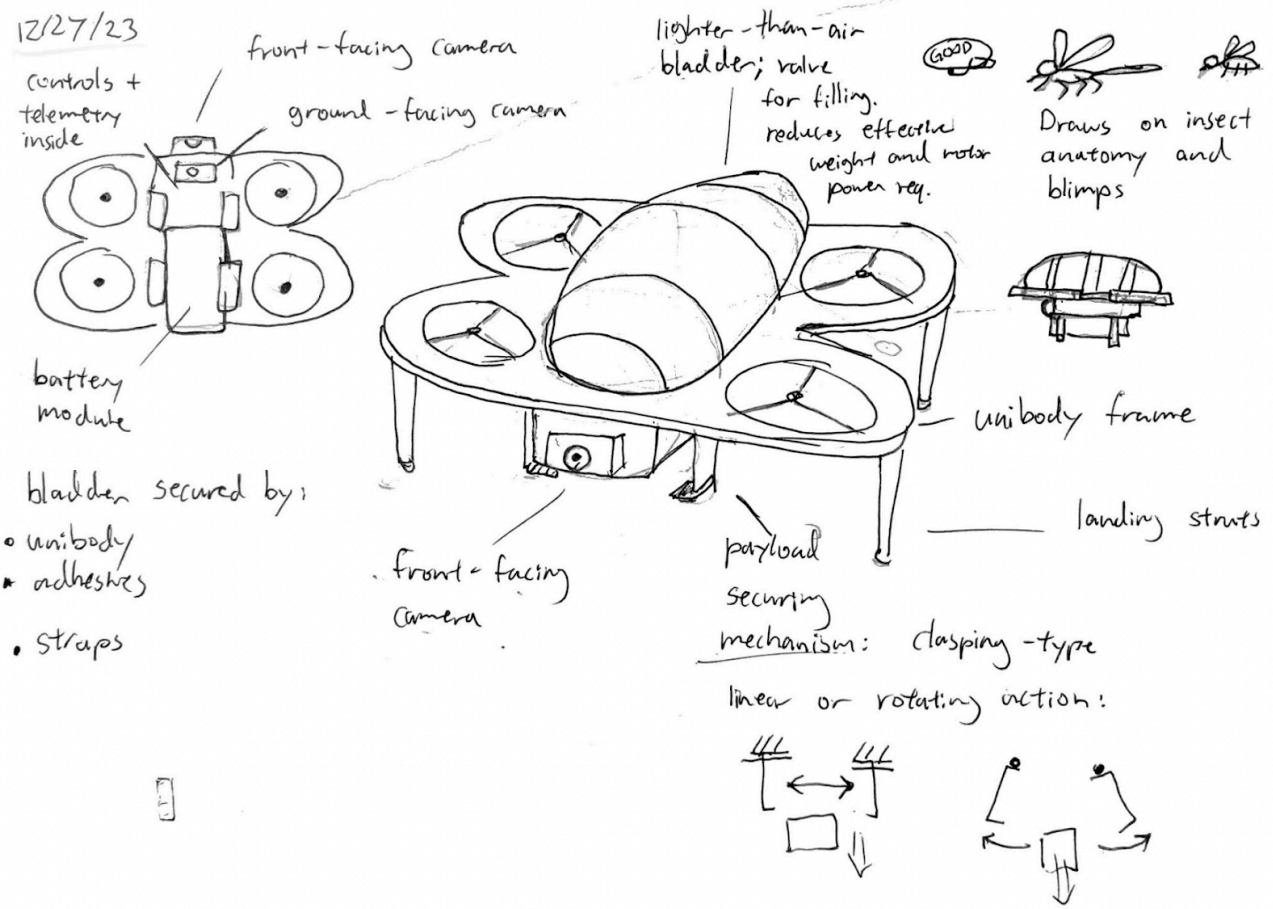 12/27/23
front-facing camera
controls +
telemetry
inside
ground-facing camera
battery
module
bladder secured by:
• unibody
• adhesives
• straps
lighter-than-air
bladder; valve
for filling.
reduces effective
weight and rotor
power req.
GOOD
Draws on insect
anatomy and
blimps
unibody frame
landing struts
front-facing
camera
payload
securing
mechanism: clasping-type
linear or rotating action: